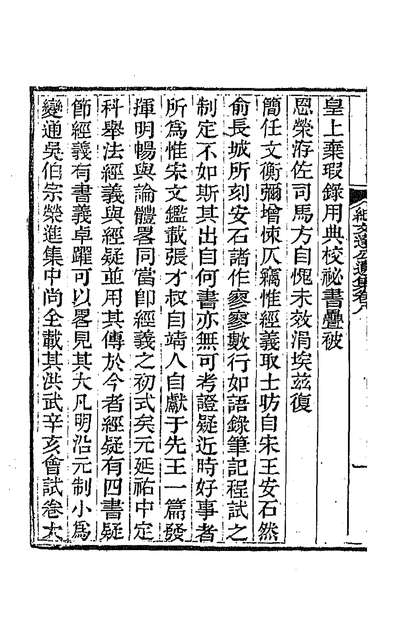 皇上棄瑕錄用典校祕書疊被
恩榮洊佐司馬方自愧未效涓埃茲復
簡任文衡彌增悚仄竊惟經義取士昉自宋王安石然
俞長城所刻安石諸作寥寥數行如語錄筆記程試之
制定不如斯其出自何書亦無可考證疑近時好事者
所為惟宋文鑑載張才叔自靖人自獻于先王一篇發
揮明暢與論體畧同當卽經義之初式矣元延祐中定
科舉法經義與經疑並用其傳於今者經疑有四書疑
節經義有書義卓躍可以畧見其大凡明沿元制小為
變通吳伯宗榮進集中尚全載其洪武辛亥會試卷大
紀文達公遺集卷八